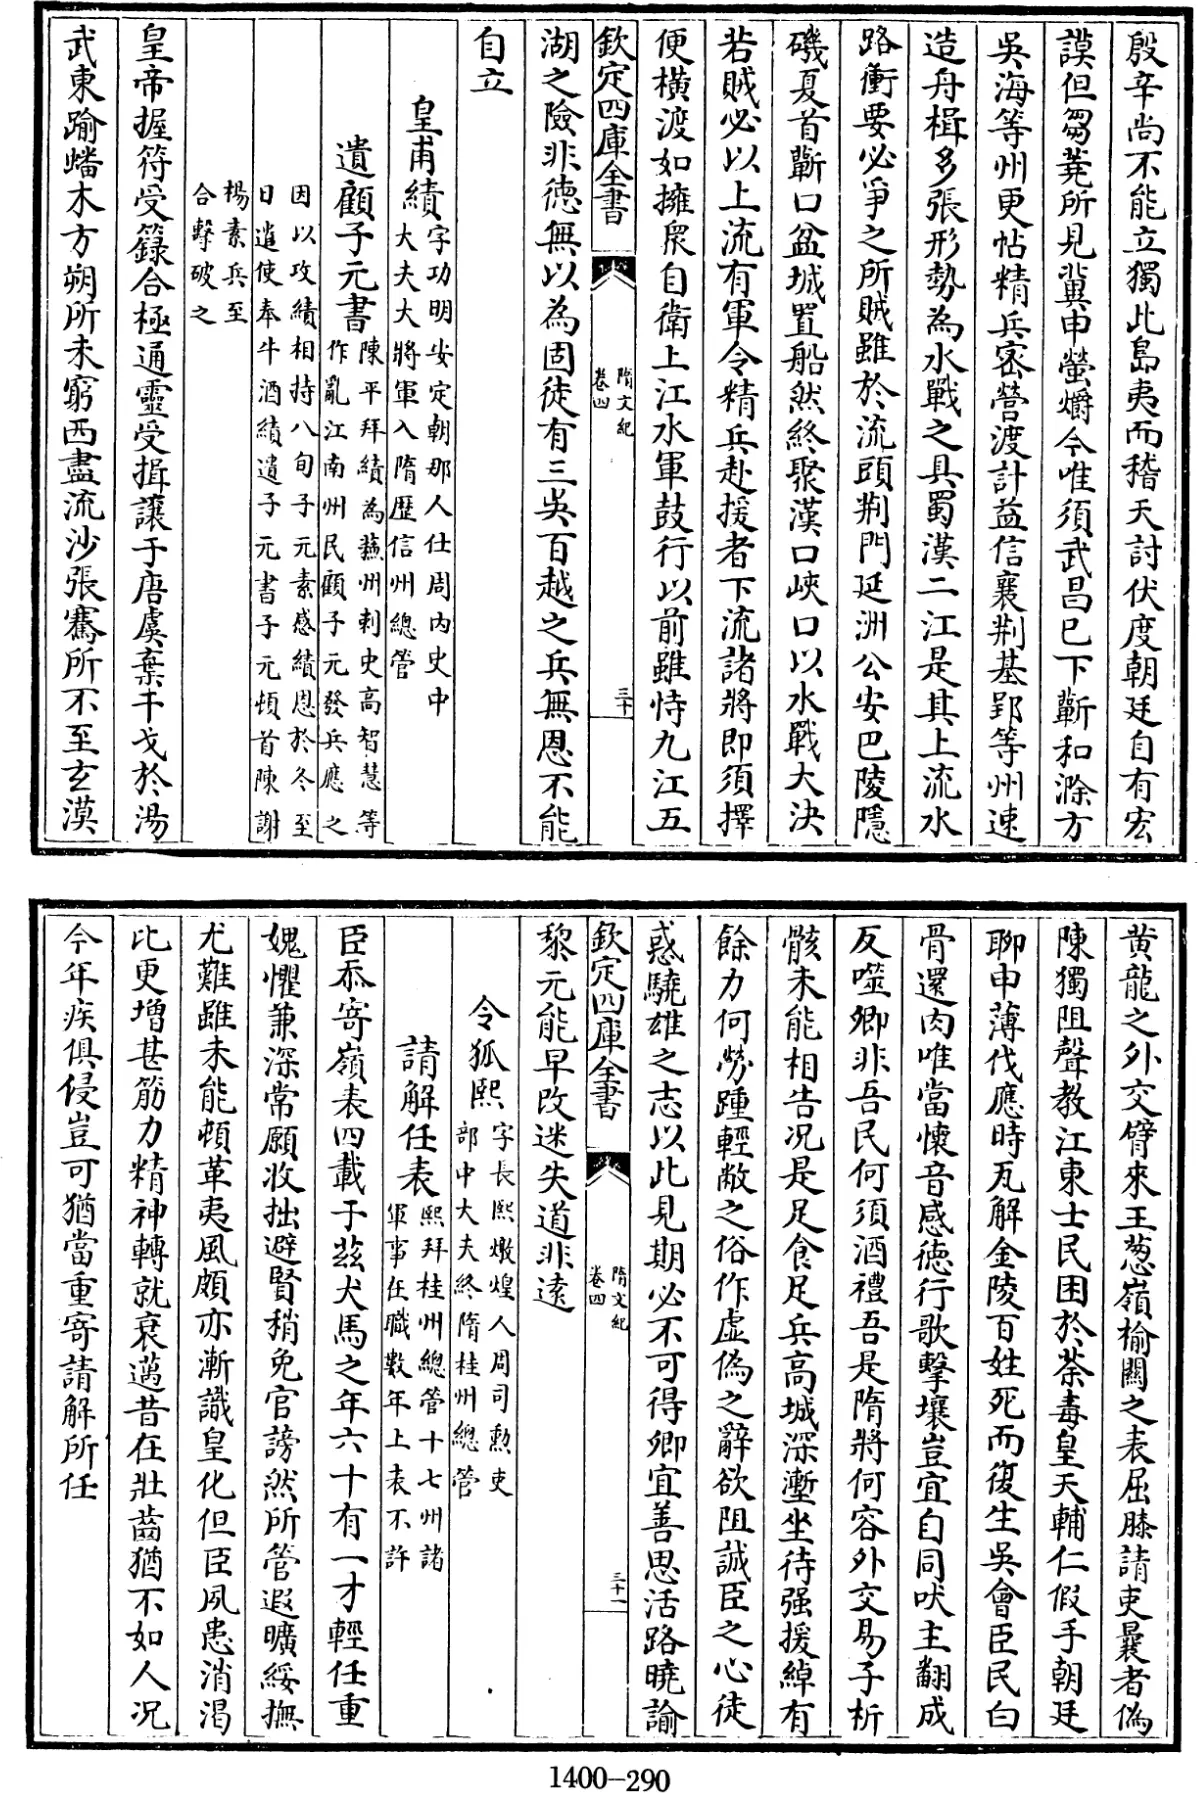 殷辛尚不能立獨此島夷而稽天討伏度朝廷自有宏
謨但芻蕘所見冀申螢爝今唯須武昌已下蘄和滁方
吳海等州更帖精兵密營渡計益信襄荆基郢等州速
造舟楫多張形勢為水戰之具蜀漢二江是其上流水
路衝要必爭之所賊雖於流頭荆門延洲公安巴陵隱
磯夏首蘄口盆城置船然終聚漢口峽口以水戰大決
若賊必以上流有軍令精兵赴援者下流諸將即須擇
便橫渡如擁衆自衛上江水軍鼓行以前雖恃九江五
欽定四庫全書
隋文紀
卷四
三十
湖之險非德無以為固徒有三吳百越之兵無恩不能
自立
皇甫績
字功明安定朝那人仕周内史中
大夫大將軍入隋歷信州總管
遺顧子元書
陳平拜績為蘓州刺史高智慧等
作亂江南州民顧子元發兵應之
因以攻績相持八旬子元素感績恩於冬至
日遣使奉牛酒績遺子元書子元頓首陳謝
楊素兵至
合擊破之
皇帝握符受籙合極通靈受揖讓于唐虞棄干戈於湯
武東踰蟠木方朔所未窮西盡流沙張騫所不至玄漠
黄龍之外交臂來王葱嶺榆關之表屈膝請吏曩者偽
陳獨阻聲教江東士民困於荼毒皇天輔仁假手朝廷
聊申薄伐應時瓦解金陵百姓死而復生吳會臣民白
骨還肉唯當懷音感德行歌擊壤豈宜自同吠主翻成
反噬卿非吾民何須酒禮吾是隋將何容外交易子析
骸未能相告况是足食足兵高城深塹坐待强援綽有
餘力何勞踵輕敝之俗作虛偽之辭欲阻誠臣之心徒
惑驍雄之志以此見期必不可得卿宜善思活路曉諭
欽定四庫全書
隋文紀
卷四
三十一
黎元能早改迷失道非遠
令狐熙
字長熙燉煌人周司勲吏
部中大夫終隋桂州總管
請解任表
熙拜桂州總管十七州諸
軍事在職數年上表不許
臣忝寄嶺表四載于兹犬馬之年六十有一才輕任重
媿懼兼深常願收拙避賢稍免官謗然所管遐曠綏撫
尤難雖未能頓革夷風頗亦漸識皇化但臣夙患消渴
比更增甚筋力精神轉就衰邁昔在壯齒猶不如人况
今年疾俱侵豈可猶當重寄請解所任
1400-290